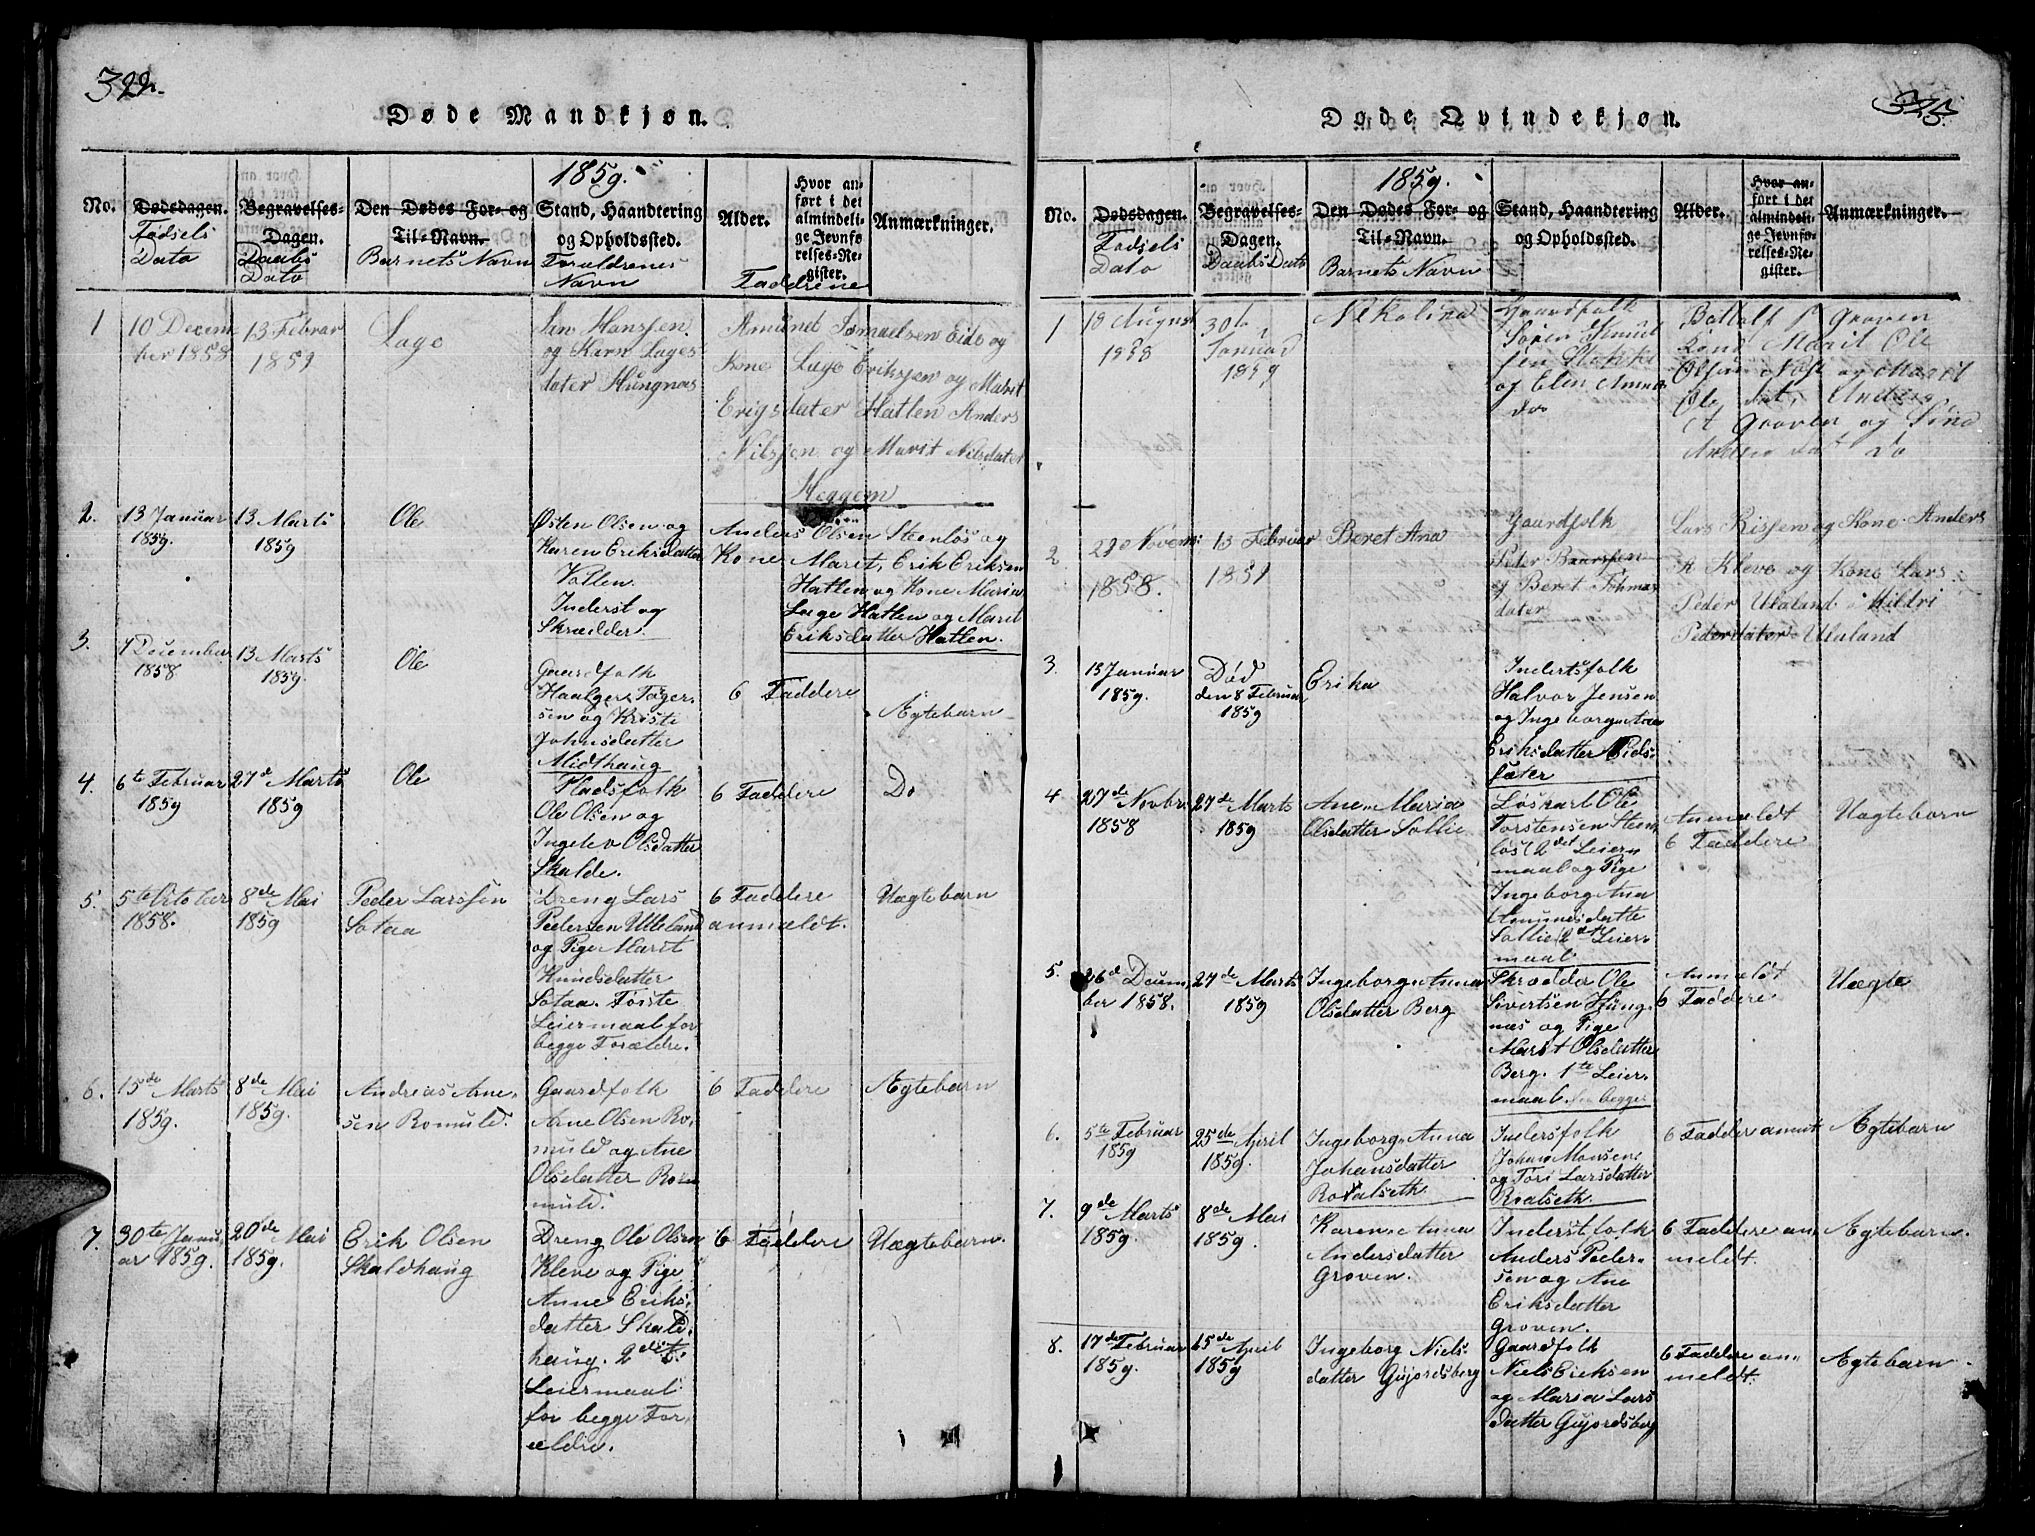 322.
Døde Mandkjøn.
1859.
No.
Dødsdagen.
Fødsels
Dato
Begravelses-
Dagen.
Daabs
Dato
Den Dødes For- og
Til-Navn.
Barnets Navn
Stand, Haandtering
og Opholdssted.
Forældrenes
Navn
Alder.
Hvor an-
ført i det
almindeli-
ge Jevnfø-
relses-Re-
gister.
Faddrene
Anmærkninger.
1
10 Decem
ber 1858
13 Februar
1859
Lage
Hanssen
og Karn Lages
dater Hungnæs
Amund Ismaelsen Eide og
Kone Lage Eriksen og Marit
Erigsdater Hatlen Anders
Nilssen og Marit Nilsdater
Heggem
2.
13 Januar
1859.
13 Marts
1859
Ole
Østen Olsen og
Karen Eriksdatter
Vollen.
Inderst og
Skrædder.
Anders Olsen Steenløs og
Kone Marit, Erik Eriksen
Hatlen og Kone Maria
Lage Hatlen og Marit
Eriksdatter Hatlen.
3.
7 December
1858
13 Marts
1859.
Ole
Gaardfolk
Haagen Tøger-
sen og Kristi
Johnsdatter
Midthaug
6 Faddere
Ægtebarn
4.
6te Februar
1859
27de Marts
1859
Ole
Pladsfolk
Ole Olsen og
Ingelev Olsdatter
Skalde.
6 Faddere
Do
5.
5te October
1858.
8de Mai
1859
Peder Larssen
Sotaa
Dreng Lars
Pedersen Ulleland
og Pige Marit
Knudsdatter
Sotaa. Første
Leiermaal for
begge Forældre.
6 Faddere
anmældt.
Uægtebarn
6.
15de Marts
1859.
8de Mai
1859.
Andreas Arne-
sen Romuld.
Gaardfolk
Arne Olsen Ro-
muld og Ane
Olsdatter Rom
muld.
6 Faddere
Ægtebarn
7.
30te Janu-
ar 1859.
20de Mai
1859.
Erik Olsen
Skaldhaug
Dreng Ole Olsen
Kleve og Pige
Anne Eriks-
datter Skald-
haug. 2det
Leiermaal
for begge For-
ældre.
6 Faddere
Uægtebarn.
323.
Døde Qvindekjøn.
1859.
No.
Dødsdagen.
Fødsels
Dato
Begravelses-
Dagen.
Daabs Dato
Den Dødes For- og
Til-Navn.
Barnets Navn
Stand, Haandtering
og Opholdssted.
Alder.
Hvor an-
ført i det
almindeli-
ge Jevnfø-
relses-Re-
gister.
Anmærkninger.
1
18 August
1858
30te
Januar
1859
Nikolina
Gaardfolk
Søren Knud
sen
og Elen Anna
do
Bottolf Groven
Kone Marit Ole
Olsen Næs og Marit
Ole dat, Anders
Groven og
Anders dat Do
2
1858.
13 Februar
1859
Beret Ana
Gaardfolk
Peder Baarssen
og Beret
dater
Lars og Kone Anders
Kleve og Kone Lars
Peder Ulaland Kildri
Pedersdater Ulaland
3.
13 Januar
1859.
Død
den 8 Februar
1859
Erika
Inderstsfolk
Halvor Jensen
og Ingeborg Ana
Eriksdatter Eids-
sæter
4.
27de Novbr.
1858
27de Marts
1859
Ane Maria
Olsdatter Sollie
Løskarl Ole
Torstensen Steen-
løs (2det Leier-
maal og Pige
Ingeborg Ana
Amunesdatte
Sollie (2det Leier-
maal
Anmældt
6 Faddere
Uægtebarn
5.
26d Decem-
ber 1858.
27de Marts
1859
Ingeborg Anna
Olsdatter Berg
Skrædder Ole
Sivertsen Hung-
næs og Pige
Marit Olsdatter
Berg. 1te Leier-
maal for begge
Anmældt
6 Faddere
Uægte
6.
5te Februar
1859
25de April
1859.
Ingeborg Anna
Johansdatter
Roalseth
Inderstfolk
Johan Monsen
og Tori Larsdatter
Roalseth.
6 Faddere anmt
Ægtebarn
7.
9de Marts
1859.
8de Mai
1859.
Karen Anna
Andersdatter
Groven.
Inderstfolk
Anders Peder-
sen og Ane
Eriksdatter
Groven.
6 Faddere an-
meldt.
Ægtebarn.
8.
17de Februar
1859.
15de April
1859
Ingeborg Niels
datter Gujordsberg
Gaardfolk
Niels Eriksen
og Maria Lars
datter Gujordsberg
6 Faddere an-
meldt.
Ægtebarn